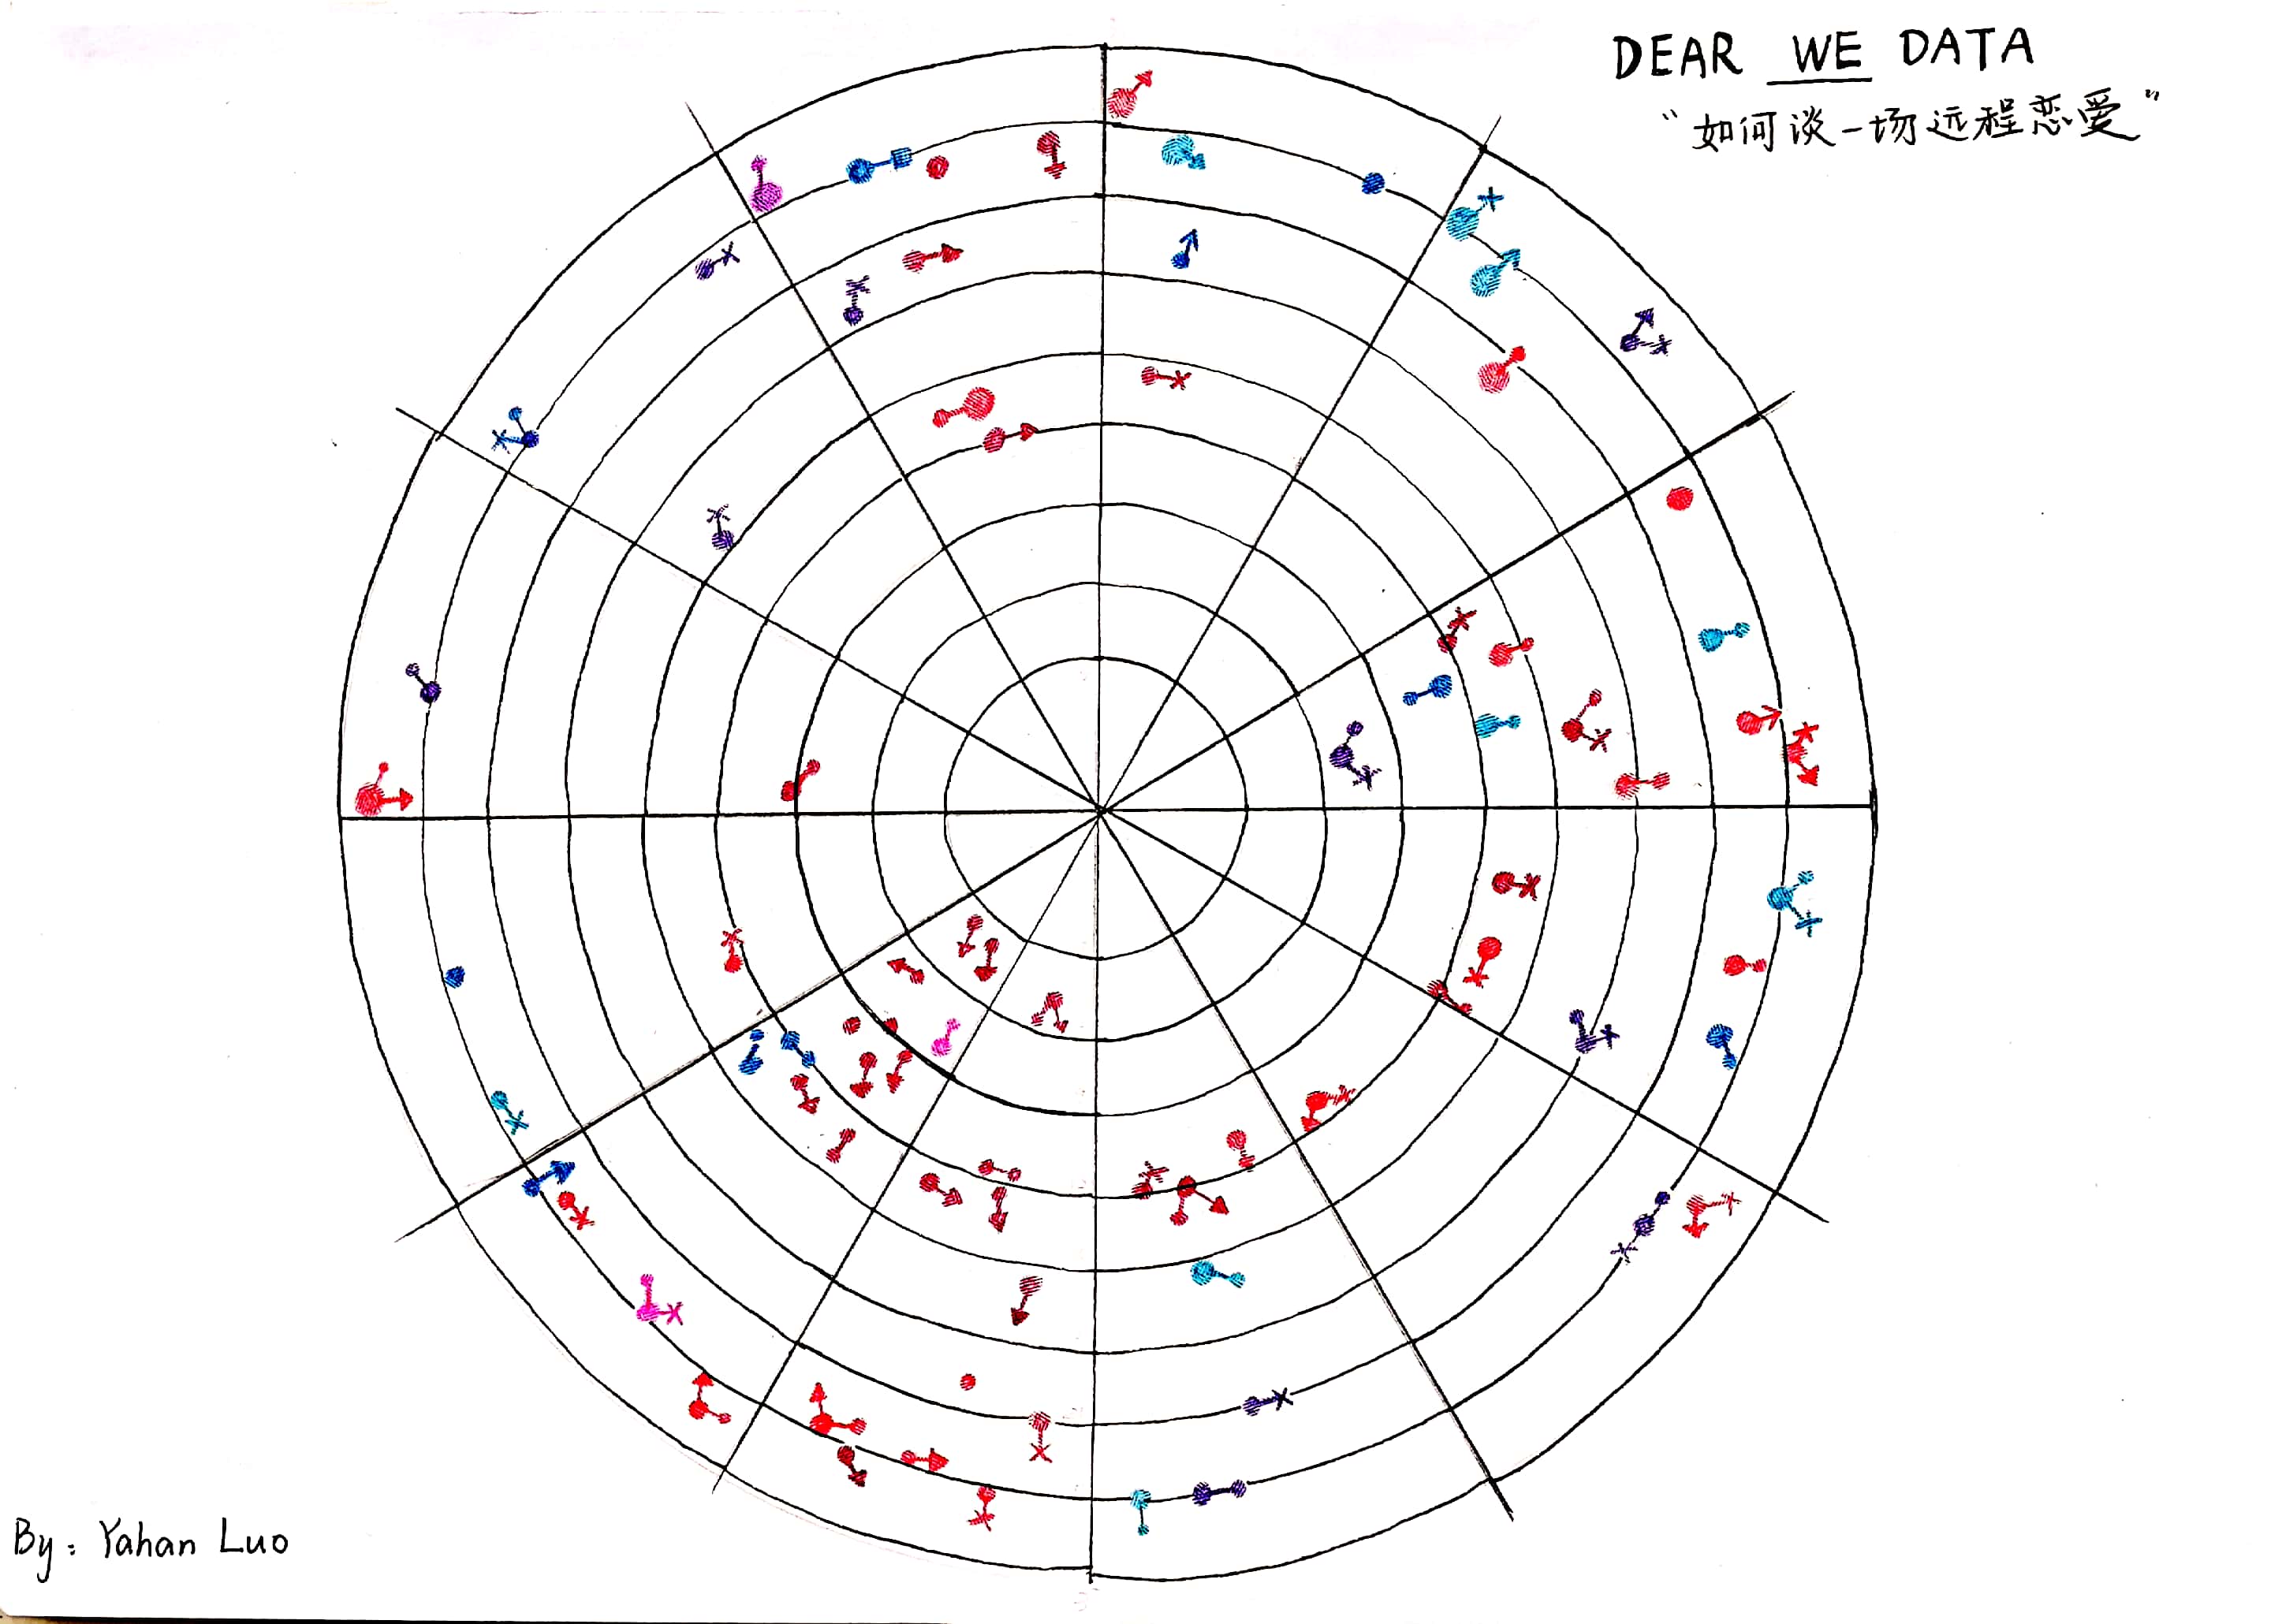 DEAR WE DATA
“如何谈一场远程恋爱”
By: Yahan Luo